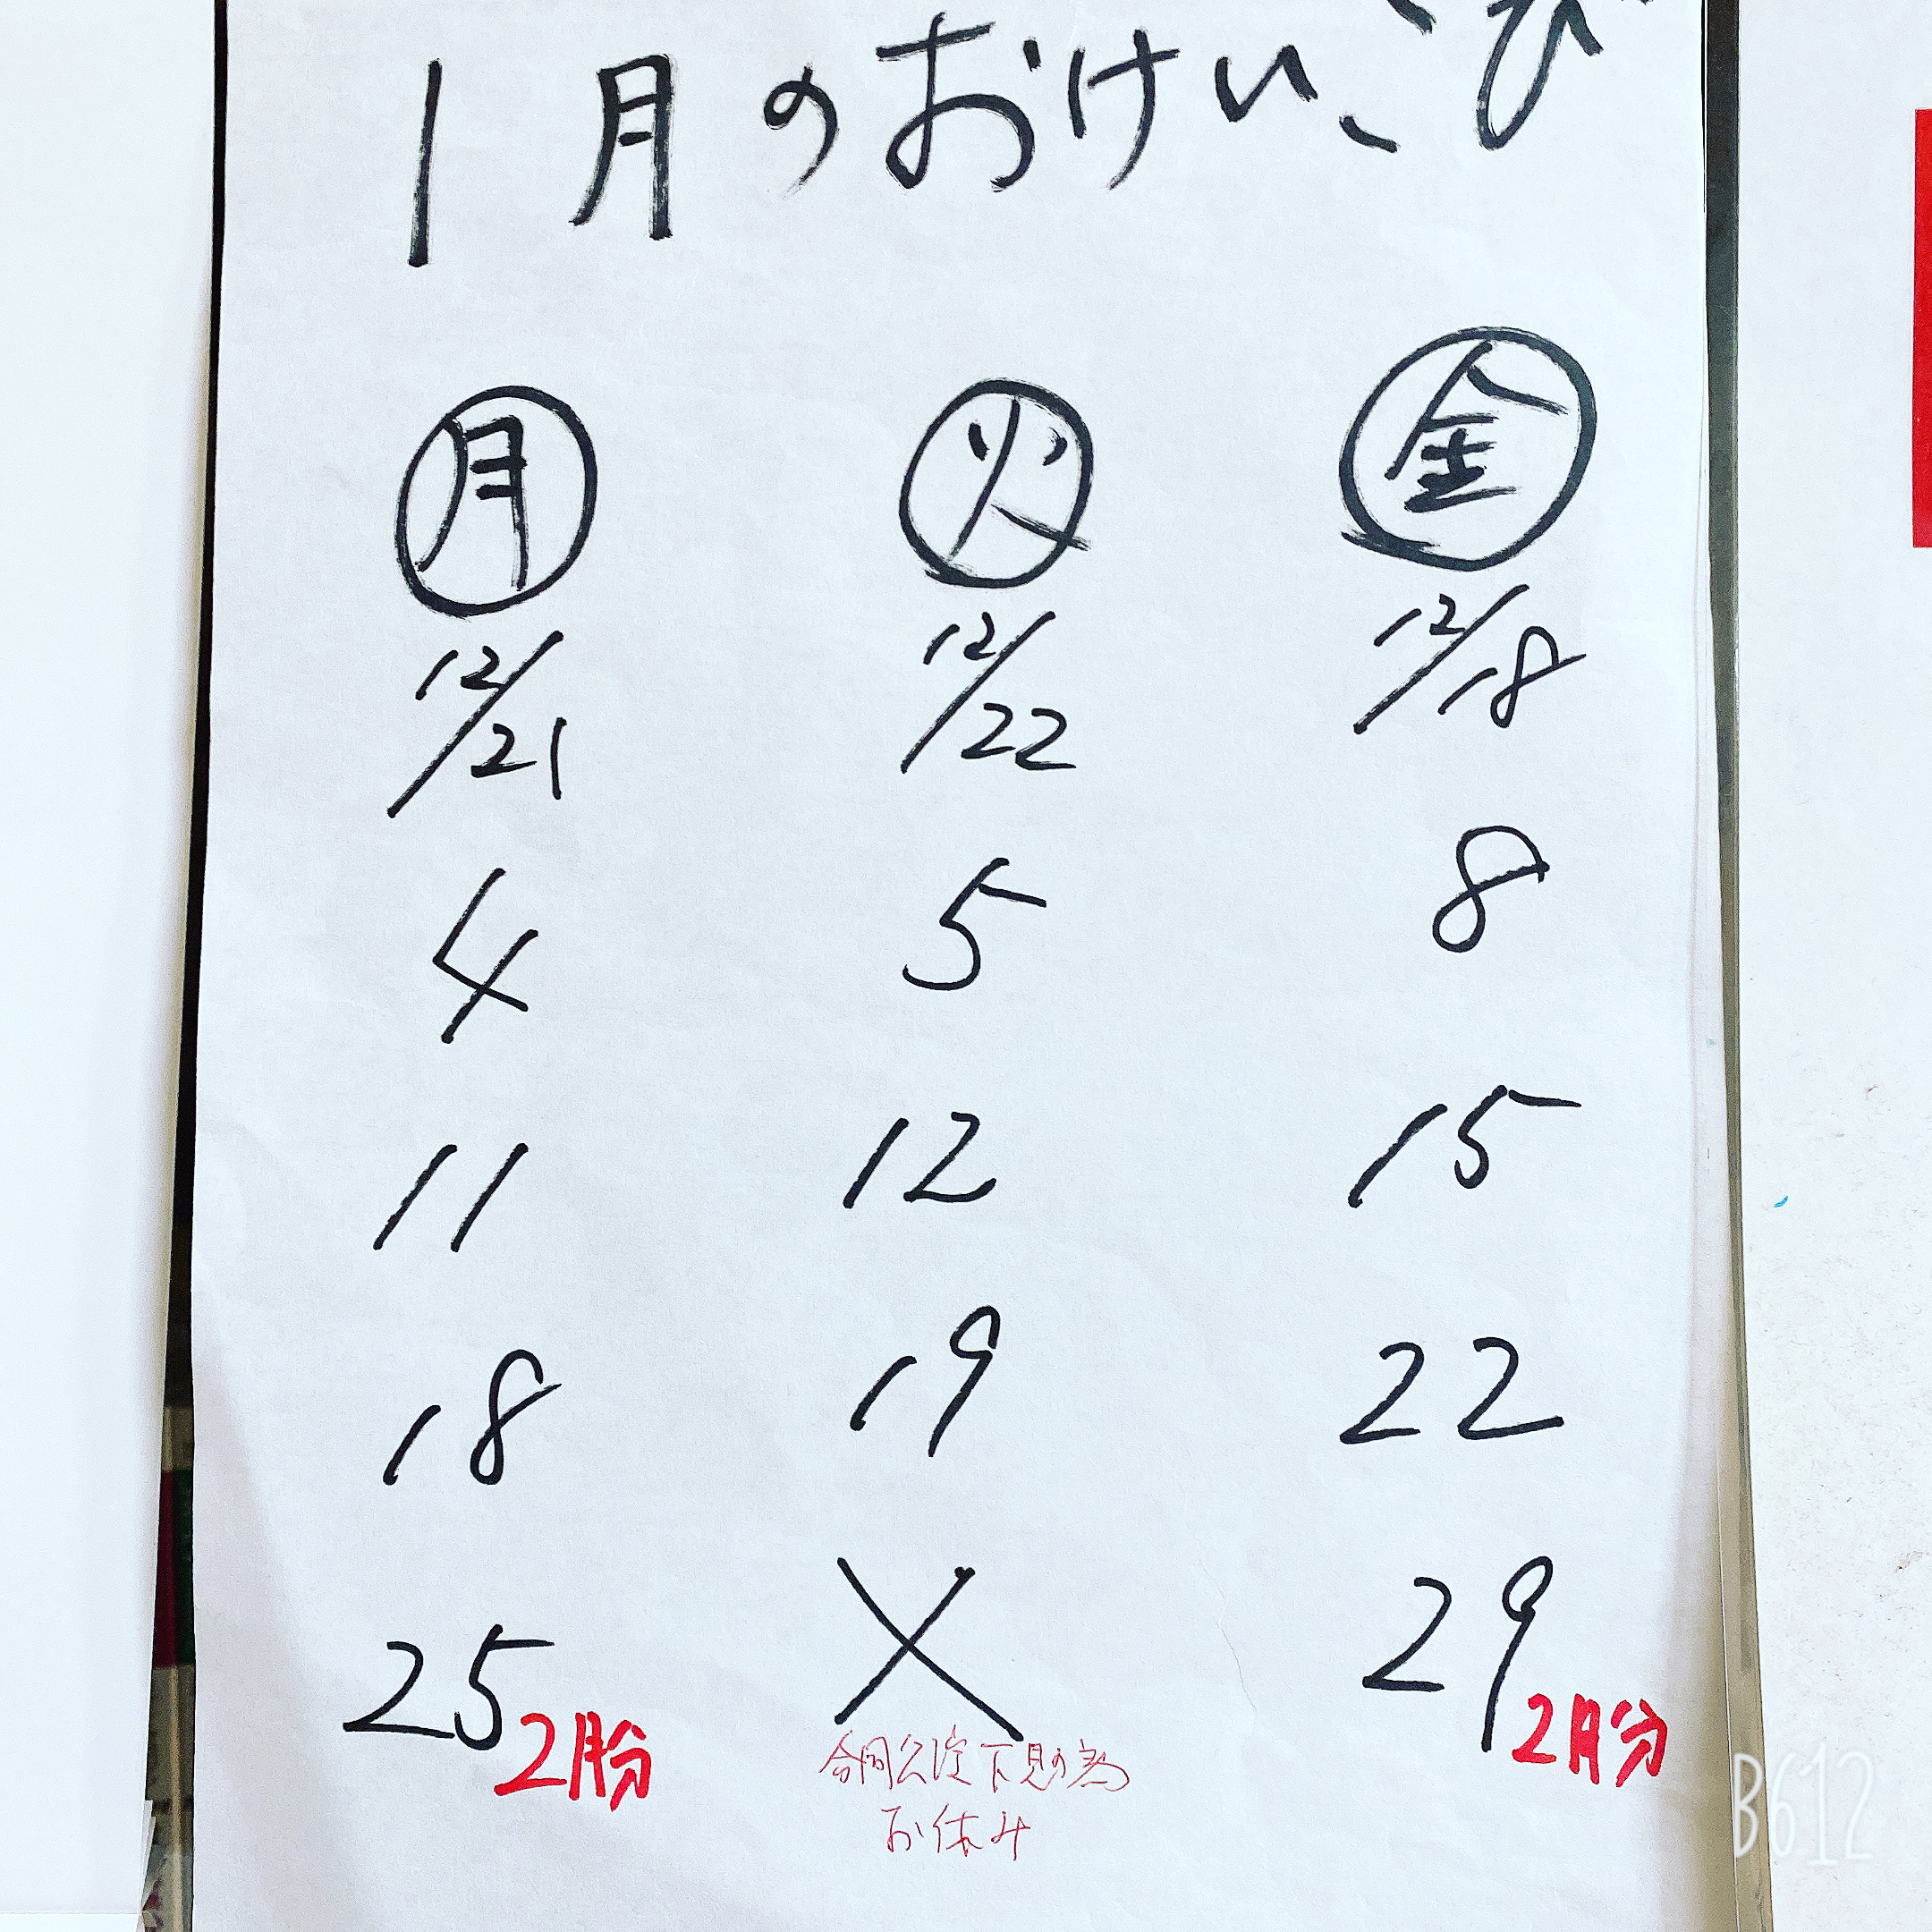 1月のおけいこび
月 火 金
12/21 12/22 12/18
4 5 8
11 12 15
18 19 22
25 2月分 × 29 2月分
合同公演下見の為
お休み
B612